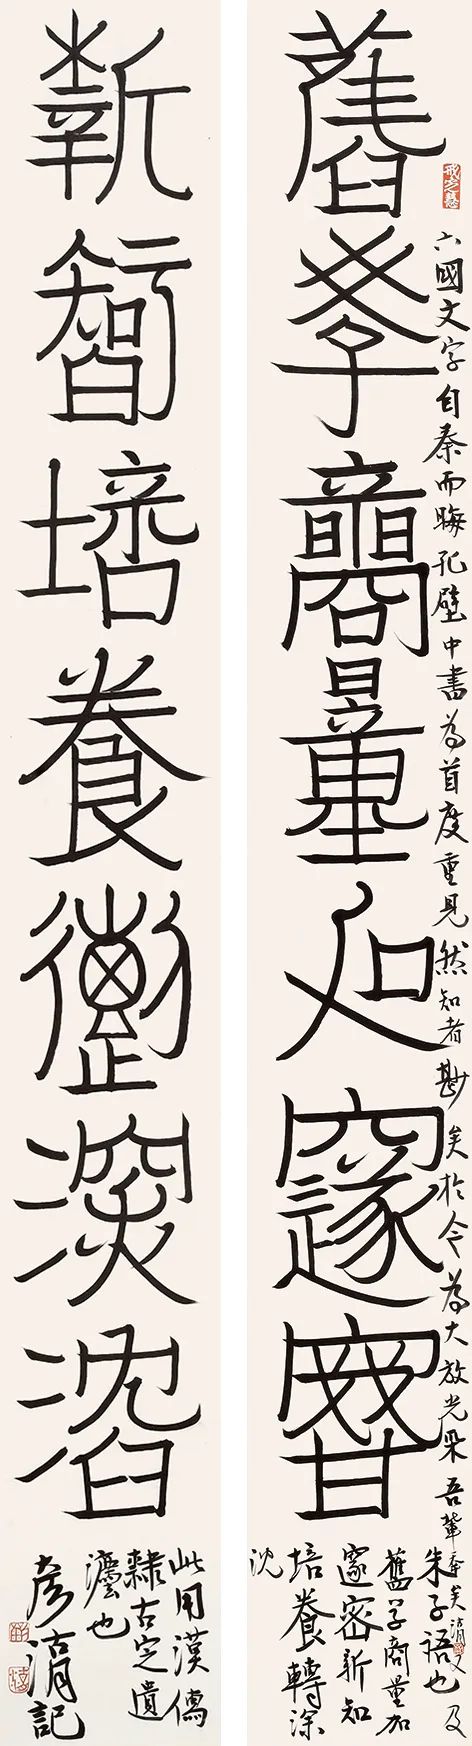 舊學商量加邃密
戒定慧
六國文字自秦而晦孔壁中書為首度重見然知者尠矣於今為大放光采吾輩幸矣
又及
朱子語也
舊学商量加
邃密新知
培養轉深
沈
新智培養轉深沈
此用漢儒
隸古定遺
灋也
彦 記